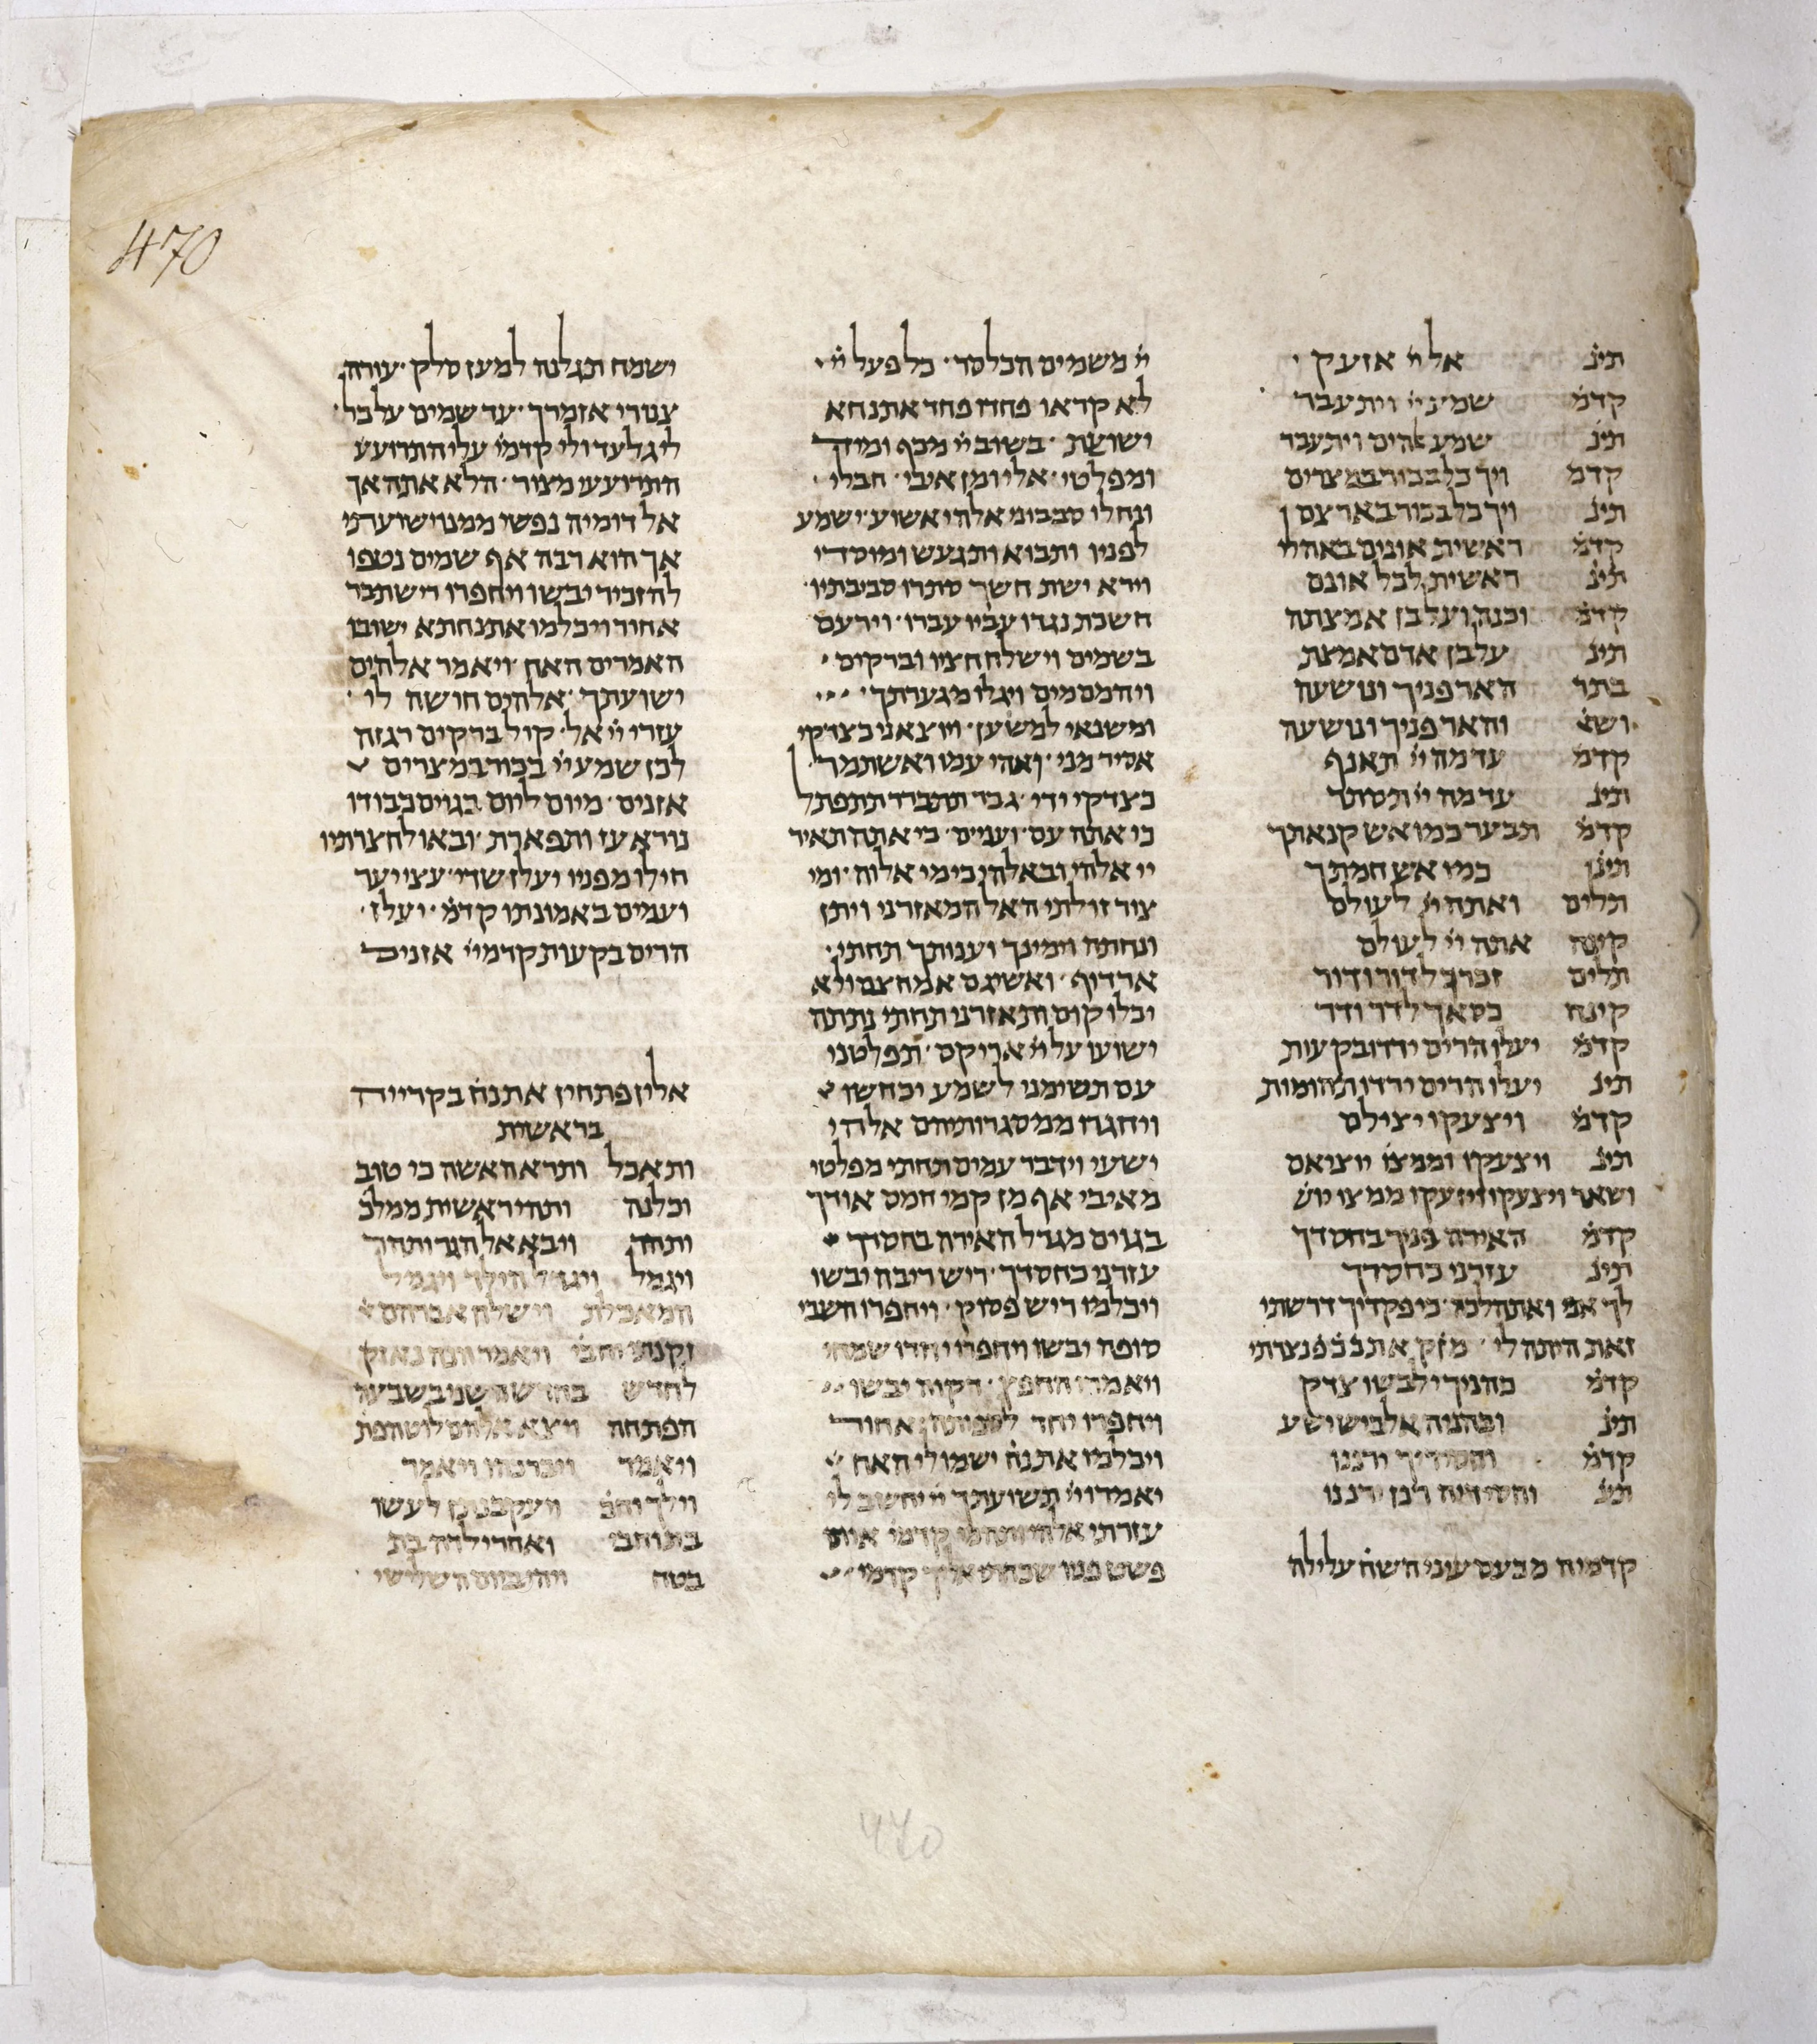 470
תינ אל יי אזעק
קדמ שמע יי ויתעבר
תינ שמע אלהים ויתעבר
קדמ ויך כל בכור במצרים
תינ ויך כל בכור בארצם
קדמ ראשית אונים באהלי
תינ ראשית לכל אונם
קדמ וכנה ועל בן אמצתה
תינ על בן אדם אמצת
בתר האר פניך ונושעה
ושא והאר פניך ונושעה
קדמ עד מה יי תאנף
תינ עד מה יי תסתר
קדמ תבער כמו אש קנאתך
תינ כמו אש חמתך
תלים ואתה יי לעולם
קינה אתה יי לעולם
תלים זכרך לדור ודור
קינה כסאך לדר ודר
קדמ יעלו הרים ירדו בקעות
תינ יעלו הרים ירדו תהומות
קדמ ויצעקו יצילם
תינ ויצעקו וממצו יוציאם
ושאר ויצעקו ויזעקו ממצו יוש
קדמ האירה פניך בחסדך
תינ עזרני כחסדך
לך אני ואתהלכה כי פקדיך דרשתי
זאת היתה לי
קדמ כהניך ילבשו צדק
תינ וכהניה אלביש ישע
קדמ וחסידיך ירננו
תינ וחסידיה רנן ירננו
קדמיה מכעס עיני השח עלילה
יי משמים הכלסד כל פעל יי
לא קראו פחדו פחד אתנחא
ישועת בשוב יי מכף ומיד
ומפלטי אלי ומן איבי חבלי
ונחלו סבבוני אלהי אשוע ישמע
לפניו ותבוא ותגעש ומוסדי
וירא ישת חשך סתרו סביבתיו
חשכת נגדו עביו עברו וירעם
בשמים וישלח חציו וברקים
ויחמסמים ויגלו מגערתך
ומשנאי למשען ויוצאני כצדקי
אסיר מני ואהי עמו ואשתמר
כצדקי ידי גבר תתברר תתפתל
כי אתה עם ועינים כי אתה תאיר
יי אלהי ובאלהי כי מי אלוה ומי
צור זולתי האל המאזרני ויתן
ונחתה וימינך וענותך תחתי
ארדוף ואשיגם אמחצם ולא
יכלו קום ותאזרני תחתי נתתה
ישועו על יי אריקם תפלטני
עם תשימני לשמע יכחשו
ויחגרו ממסגרותיהם אלהי
ישעי וידבר עמים תחתי מפלטי
מאיבי אף מן קמי חמס אודך
בגוים מגדל האירה בחסדך
עזרני כחסדך ריש ריבה יבשו
ויכלמו ריש פסוק ויחפרו חשבי
סופה יבשו ויחפרו יחדו שמחי
ויאמרו החפץ יבשו
ויחפרו יחד אחור
ויכלמו אתנח ישמו לי האח
יאמרו יי תשועתך יי יחשב לי
עזרתי קדמי אותי
קדמי
ישמח תגלנה למעז סלק עורה
צורי אזמרך עד שמים על כל
ליגלעד ולי קדמ עלי התרועע
התרועעי מצור הלא אתה אך
אל דומיה נפשי ממנו ישועתי
אך הוא רבה אף שמים נטפו
להזכיר יבשו ויחפרו ריש תבר
אחור ויכלמו אתנחתא ישובו
האמרים האח ויאמר אלהים
ישועתך אלהים חושה לי
עזרי יי אל קול ברקים רגזה
לכן שמע יי בכור במצרים
אזנים מיום ליום בגוים כבודו
נורא עז ותפארת ובאו לחצרותיו
חילו מפניו יעלז שדי עצי יער
ועמים באמונתו קדמ ועלז
הרים בקעות קדמיי אזנים
אלין פתחין אתנח בקרייה
בראשית
ותאכל ותרא האשה כי טוב
וכלנה ותהי ראשית ממלכ
ותהר ויבא אל הגר ותהר
ויגמל ויגדל הילד ויגמל
המאכלת וישלח אברהם
לחדש בחדש השני בשבעה
הפתחה ויצא אלהם לוט הפת
ויאמר ויברכהו ויאמר
וילך והפ לעשו
בתוחבי ואחר ילדה בת
בטח ויהי ביום השלישי
440